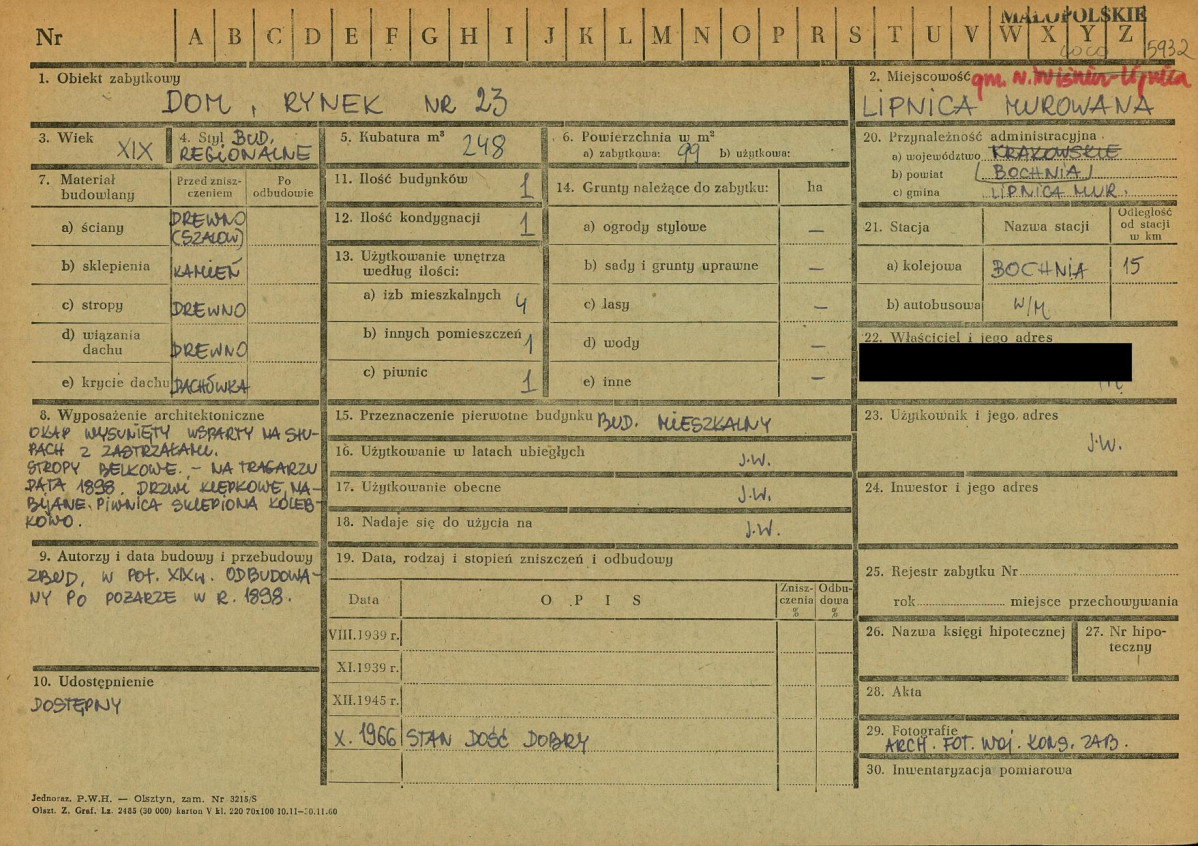 Nr A B C D E F G H I J K L M N O P R S T U V W X Y Z
MAŁOPOLSKIE
5932
1. Obiekt zabytkowy
DOM, RYNEK NR 23
2. Miejscowość
LIPNICA MUROWANA
3. Wiek XIX
4. Styl BUD.
REGIONALNE
5. Kubatura m³ 248
6. Powierzchnia w m²
a) zabytkowa: 99 b) użytkowa:
7. Materiał budowlany
Przed zniszczeniem
Po odbudowie
a) ściany DREWNO
(SZALOW)
b) sklepienia KAMIEŃ
c) stropy DREWNO
d) wiązania dachu DREWNO
e) krycie dachu DACHÓWKA
8. Wyposażenie architektoniczne
OKAP WYSUNIĘTY WSPARTY NA SŁU-
PACH Z ZASTRZAŁAMI.
STROPY BELKOWE. – NA TRAGARZU
DATA 1898. DRZWI KLEPKOWE, NA-
BIJANE. PIWNICA SKLEPIONA KOLEB-
KOWO.
9. Autorzy i data budowy i przebudowy
ZBUD. W POŁ. XIX w. ODBUDOWA-
NY PO POŻARZE W R. 1898.
10. Udostępnienie
DOSTĘPNY
11. Ilość budynków 1
12. Ilość kondygnacji 1
13. Użytkowanie wnętrza
według ilości:
a) izb mieszkalnych 4
b) innych pomieszczeń 1
c) piwnic 1
14. Grunty należące do zabytku: ha
a) ogrody stylowe –
b) sady i grunty uprawne –
c) lasy –
d) wody –
e) inne –
15. Przeznaczenie pierwotne budynku BUD. MIESZKALNY
16. Użytkowanie w latach ubiegłych J.W.
17. Użytkowanie obecne J.W.
18. Nadaje się do użycia na J.W.
19. Data, rodzaj i stopień zniszczeń i odbudowy
Data OPIS Znisz-
czenia
% Odbu-
dowa
%
VIII.1939 r.
XI.1939 r.
XII.1945 r.
X. 1966 STAN DOŚĆ DOBRY
20. Przynależność administracyjna
a) województwo KRAKOWSKIE
b) powiat BOCHNIA
c) gmina LIPNICA MUR.
21. Stacja Nazwa stacji Odległość
od stacji
w km
a) kolejowa BOCHNIA 15
b) autobusowa W/M
22. Właściciel i jego adres
23. Użytkownik i jego adres
J.W.
24. Inwestor i jego adres
25. Rejestr zabytku Nr
rok miejsce przechowywania
26. Nazwa księgi hipotecznej
27. Nr hipo-
teczny
28. Akta
29. Fotografie
ARCH. FOT. WOJ. KONS. ZAB.
30. Inwentaryzacja pomiarowa
Jednoraz. P.W.H. — Olsztyn, zam. Nr 3215/S
Olszt. Z. Graf. Lz. 2485 (30 000) karton V kl. 220 70x100 10.11—30.11.60